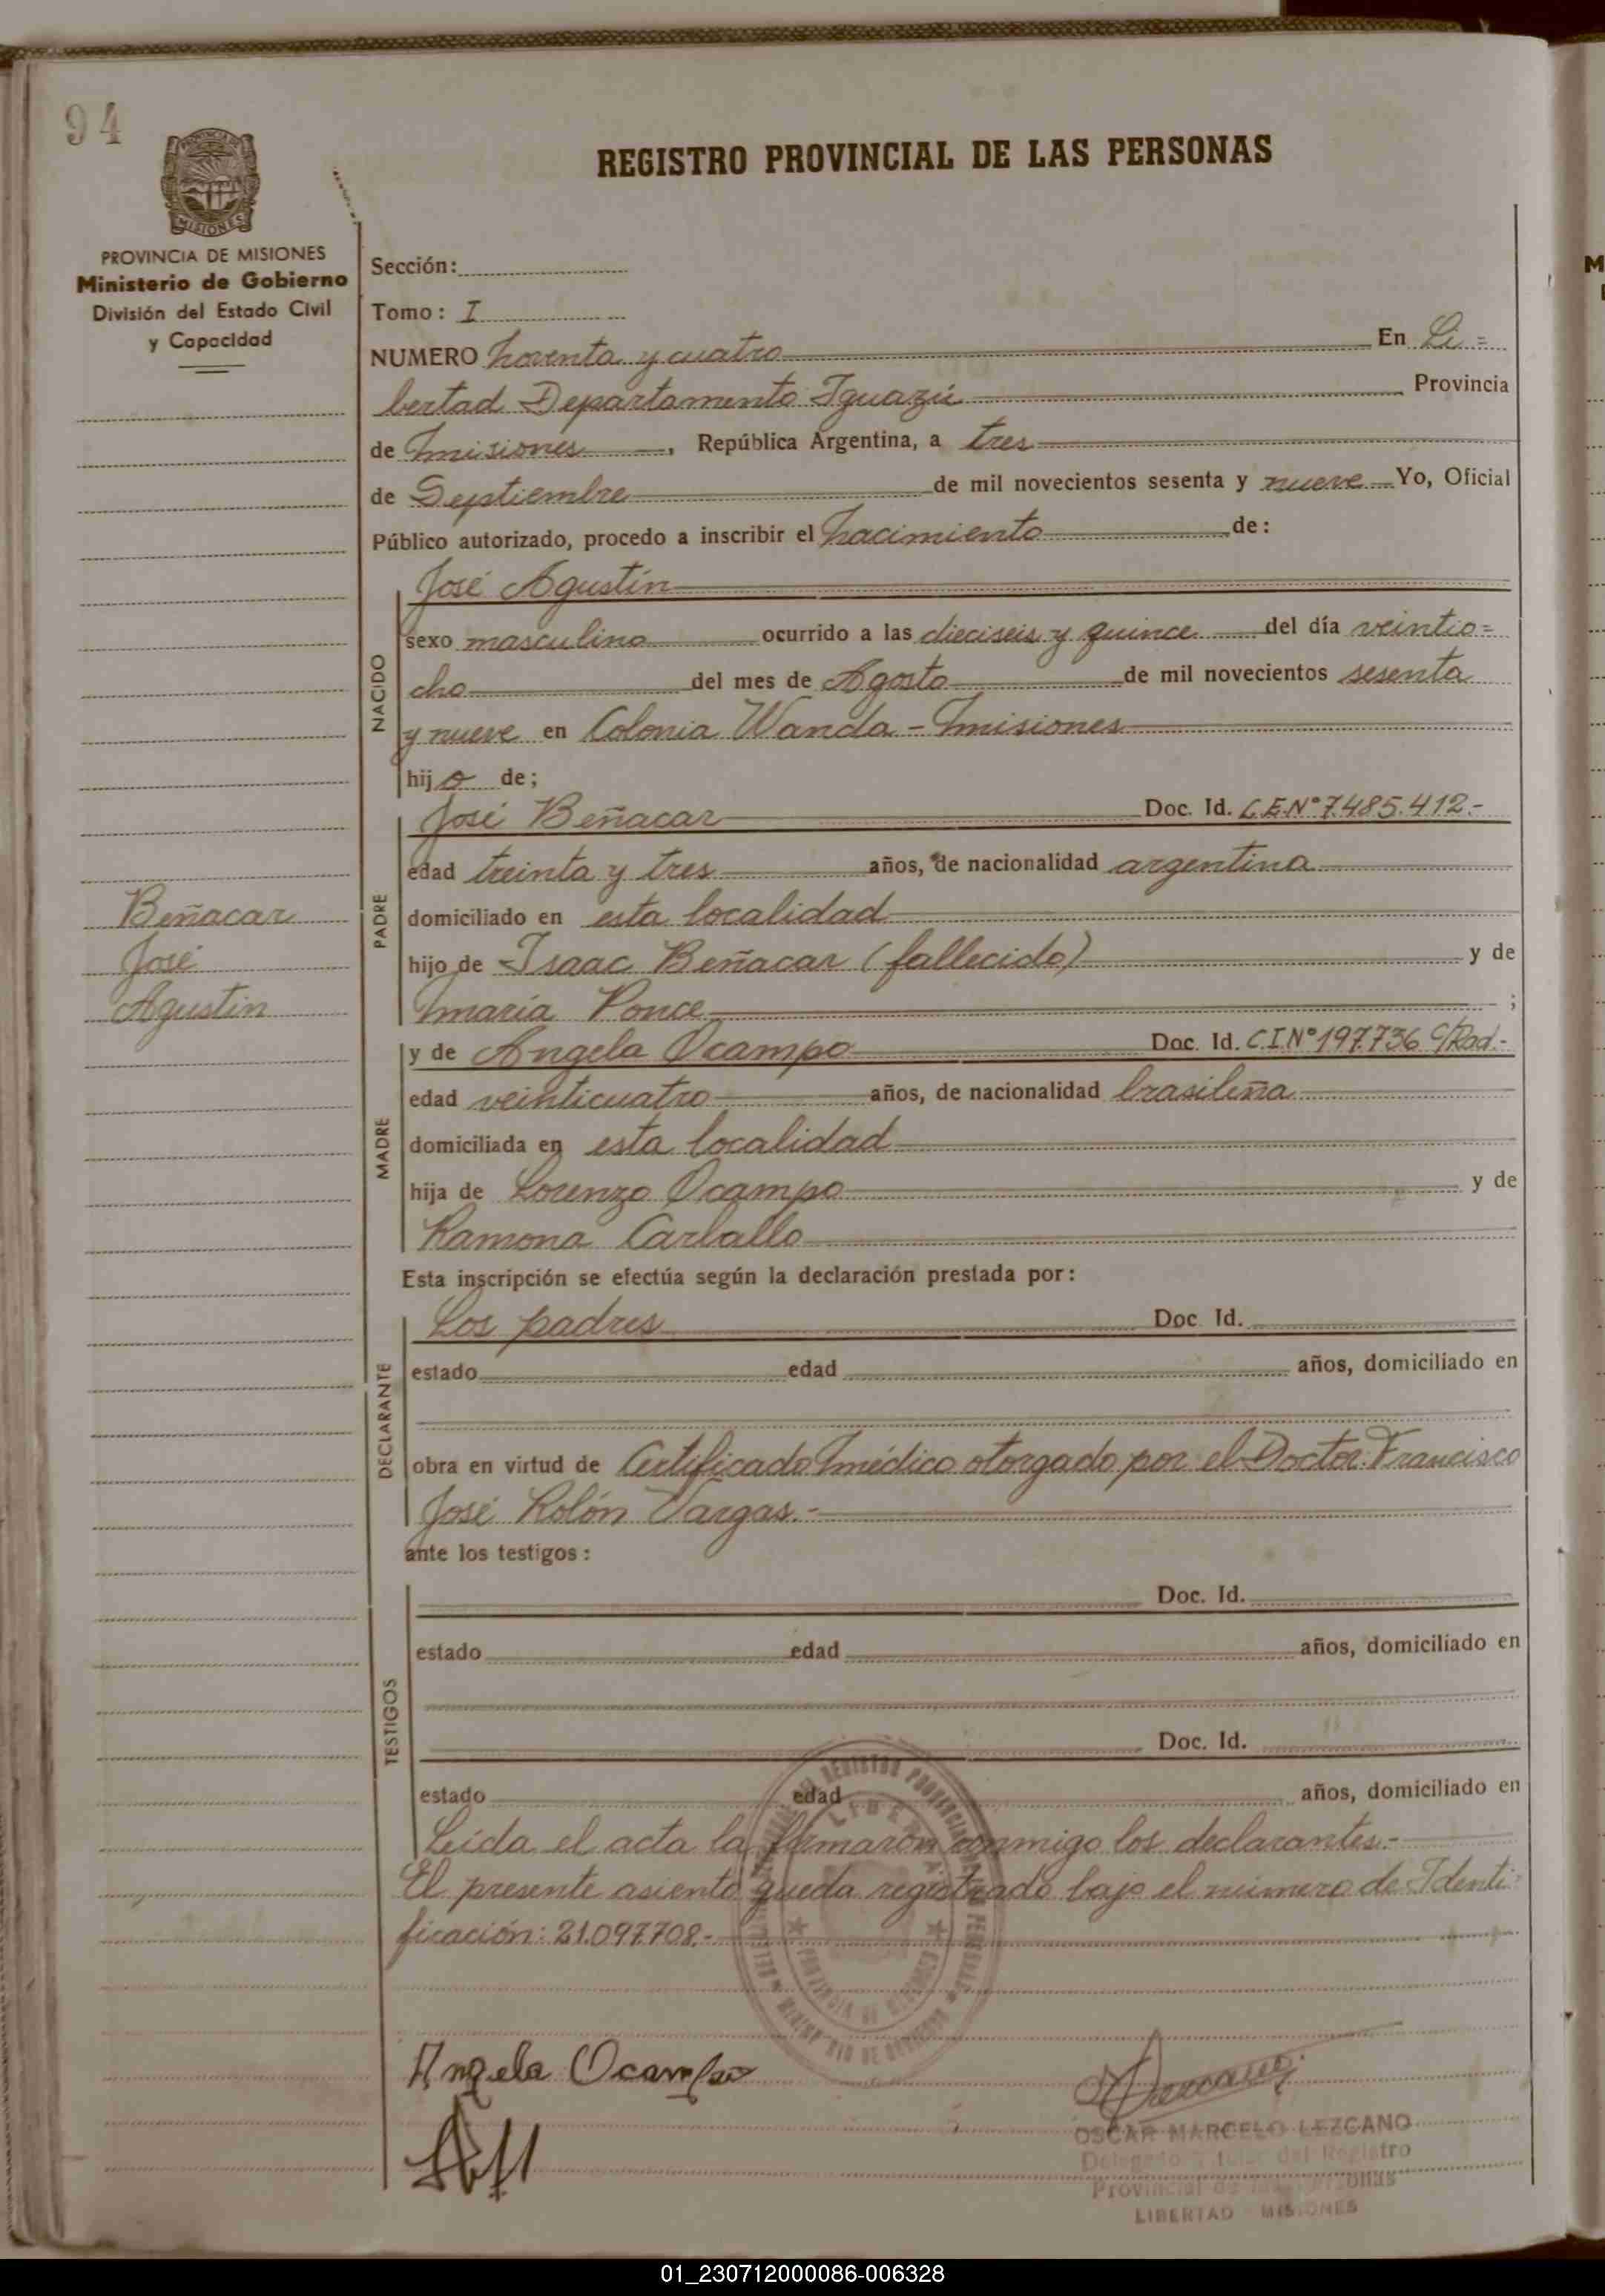 94
PROVINCIA DE
MISIONES
PROVINCIA DE MISIONES
Ministerio de Gobierno
División del Estado Civil
y Capacidad
REGISTRO PROVINCIAL DE LAS PERSONAS
Sección:
Tomo: I
NUMERO Noventa y cuatro En Li=
bertad Departamento Iguazú Provincia
de Misiones, República Argentina, a tres
de Septiembre de mil novecientos sesenta y nueve Yo, Oficial
Público autorizado, procedo a inscribir el Nacimiento de:
NACIDO
José Agustín
sexo masculino ocurrido a las dieciseis y quince del día veintio=
cho del mes de Agosto de mil novecientos sesenta
y nueve en Colonia Wanda - Misiones
hijo de;
PADRE
José Beñacar Doc. Id. L.E.Nº 7.485.412.-
edad treinta y tres años, de nacionalidad argentina
domiciliado en esta localidad
hijo de Isaac Beñacar (fallecido) y de
María Ponce ;
Beñacar
José
Agustín
MADRE
y de Angela Ocampo Doc. Id. C.I.Nº 197.736 C/Rad.-
edad veinticuatro años, de nacionalidad brasileña
domiciliada en esta localidad
hija de Lorenzo Ocampo y de
Ramona Carballo
Esta inscripción se efectúa según la declaración prestada por:
DECLARANTE
Los padres Doc. Id.
estado edad años, domiciliado en
obra en virtud de Certificado Médico otorgado por el Doctor Francisco
José Rolón Vargas.-
ante los testigos:
TESTIGOS
Doc. Id.
estado edad años, domiciliado en
Doc. Id.
estado edad años, domiciliado en
Leída el acta la firmaron conmigo los declarantes.-
El presente asiento queda registrado bajo el número de Identi=
ficación: 21.097.708.-
Angela Ocampo
OSCAR MARCELO LEZCANO
Delegado Titular del Registro
Provincial de las Personas
LIBERTAD - MISIONES
01_230712000086-006328